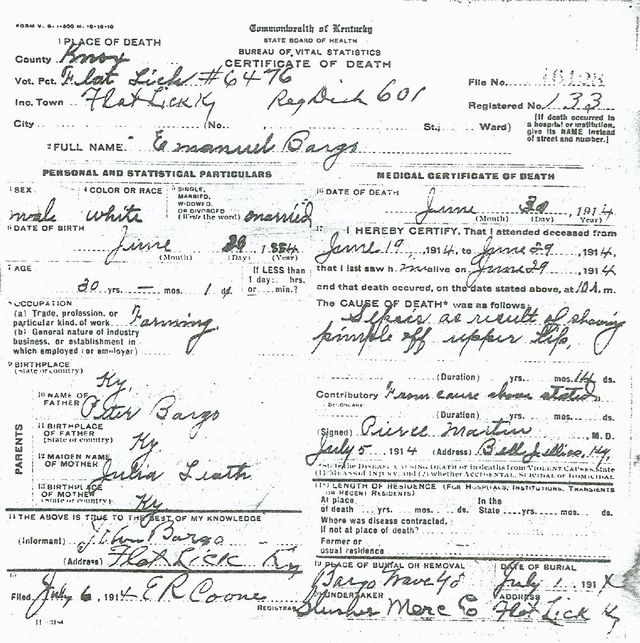 FORM V. S. 1-500 M. 10-16-10
Commonwealth of Kentucky
STATE BOARD OF HEALTH
BUREAU OF VITAL STATISTICS
CERTIFICATE OF DEATH
1 PLACE OF DEATH
County Knox
Vot. Pct. Flat Lick #6476
File No.
Inc. Town Flat Lick Ky Reg Dich 601
Registered No. 133
City (No. St.; Ward)
(If death occurred in a hospital or institution, give its NAME instead of street and number.)
2 FULL NAME Emanuel Bargo
PERSONAL AND STATISTICAL PARTICULARS
3 SEX male
4 COLOR OR RACE white
5 SINGLE, MARRIED, WIDOWED, OR DIVORCED (Write the word) married
6 DATE OF BIRTH
June 29 1884
(Month) (Day) (Year)
7 AGE
30 yrs. — mos. 1 ds.
If LESS than 1 day: hrs. or min.?
8 OCCUPATION
(a) Trade, profession, or particular kind of work Farming
(b) General nature of industry business, or establishment in which employed (or employer)
9 BIRTHPLACE
(State or country) Ky,
PARENTS
10 NAME OF FATHER Peter Bargo
11 BIRTHPLACE OF FATHER (State or country) Ky
12 MAIDEN NAME OF MOTHER Julia Leath
13 BIRTHPLACE OF MOTHER (State or country) Ky
14 THE ABOVE IS TRUE TO THE BEST OF MY KNOWLEDGE
(Informant) John Bargo
(Address) Flat Lick Ky
15
Filed July 6, 1914 E R Coone
REGISTRAR
11-3184
MEDICAL CERTIFICATE OF DEATH
16 DATE OF DEATH
June 30, 1914
(Month) (Day) (Year)
17 I HEREBY CERTIFY, That I attended deceased from
June 19, 1914, to June 29, 1914,
that I last saw h m alive on June 29, 1914
and that death occurred, on the date stated above, at 10 A.m.
The CAUSE OF DEATH* was as follows:
Sepsis as result of shaving
pimple off upper lip,
(Duration) yrs. mos. 14 ds.
Contributory From cause above stated
(Duration) yrs. mos. ds.
(Signed) Pierce Martin, M. D.
July 5, 1914 (Address)
*State the DISEASE CAUSING DEATH or in deaths from VIOLENT CAUSES, state (1) MEANS OF INJURY, and (2) whether ACCIDENTAL, SUICIDAL or HOMICIDAL
18 LENGTH OF RESIDENCE (FOR HOSPITALS, INSTITUTIONS, TRANSIENTS OR RECENT RESIDENTS)
At place of death yrs. mos. ds. In the State yrs. mos. ds.
Where was disease contracted, if not at place of death?
Former or usual residence
19 PLACE OF BURIAL OR REMOVAL
DATE OF BURIAL
Bargo Grave Yd July 1, 191
20 UNDERTAKER ADDRESS
Slusher Merc Co Flat Lick Ky